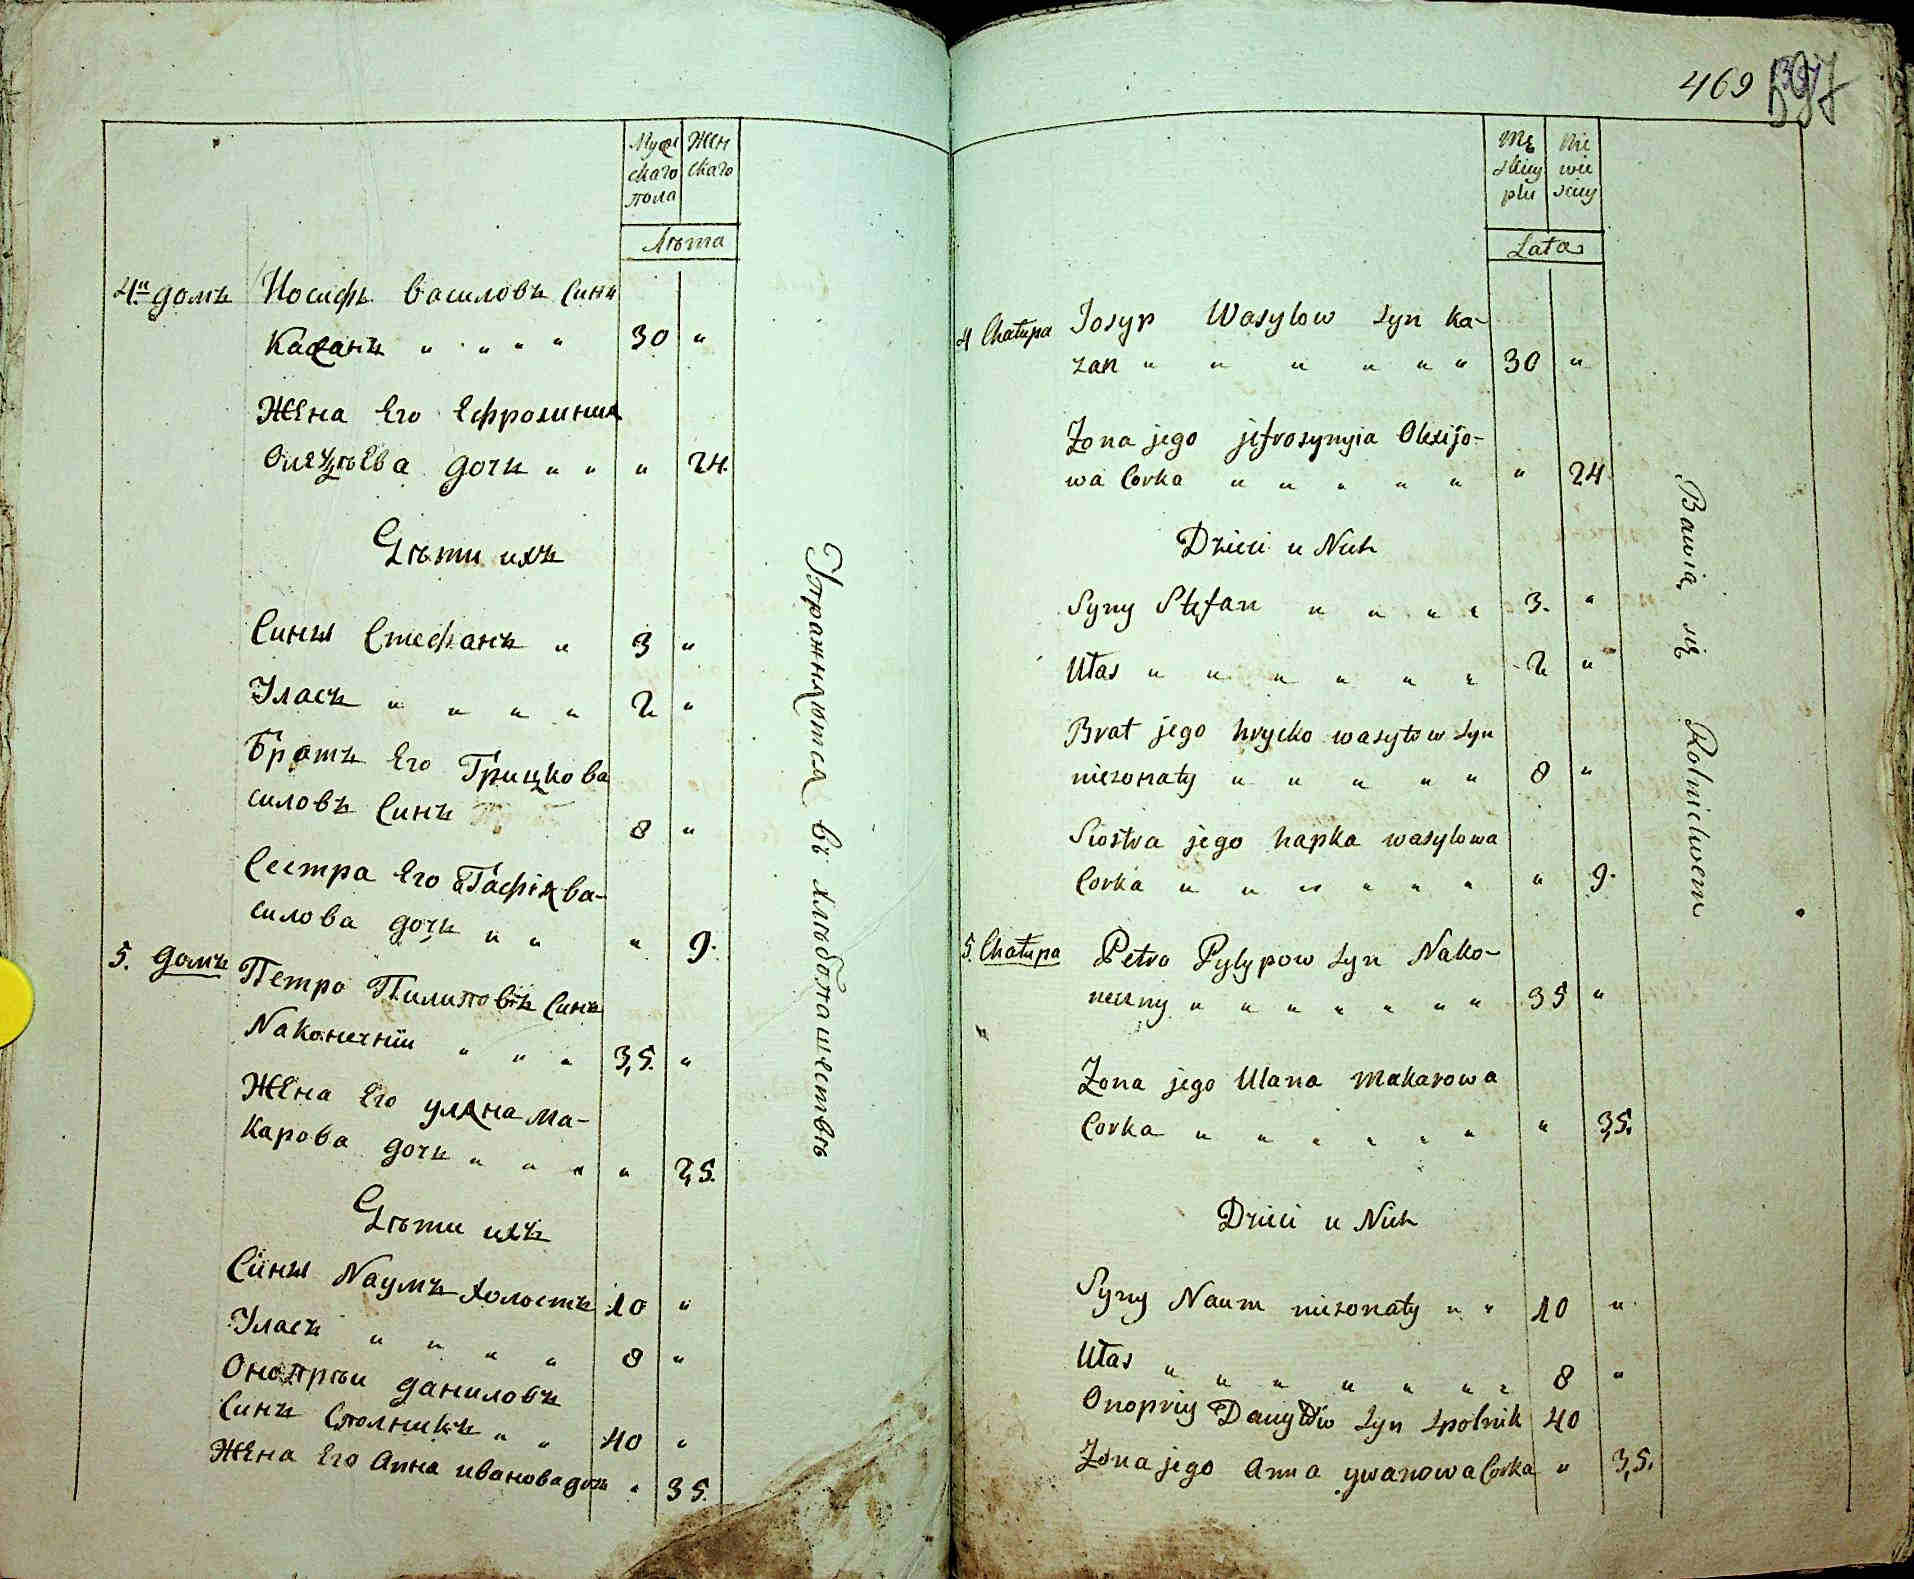 Мужескаго пола
Женскаго
Лѣта
4й домъ Иосифъ василовъ Синъ
Казанъ " " " " 30 "
Жена Его Ефросиния
Олексѣева дочь " " " 24.
Дѣти ихъ
Сины Стефанъ " 3 "
Уласъ " " " " 2 "
Братъ Его Грицко ва
силовъ Синъ 8 "
Сестра Его Гафія ва-
силова дочь " " " 9.
5. домъ Петро Пилиповъ Синъ
Nаконечній " " " 35. "
Жена Его уляна ма-
карова дочь " " " " 25.
Дѣти ихъ
Сины Nаумъ холостъ 10 "
Уласъ " " " " 8 "
Онопрѣи даниловъ
Синъ Сполникъ " " 40 "
Жена Его Анна иванова дочь " 35.
Упражняются въ хлѣбопашествѣ
469
397
Męskiey płci
Niewieściey
Lata
4 Chałupa Josyp Wasylow Syn Ka-
zan " " " " " " 30 "
Zona jego jefrosynyia Olexijo-
wa Corka " " " " " " 24.
Dzieci u Nich
Syny Stefan " " " " 3. "
Ułas " " " " " " 2 "
Brat jego hrycko wasylow Syn
niezonaty " " " " " 8 "
Siostra jego hapka wasylowa
Corka " " " " " " " 9.
5. Chałupa Petro Pylypow Syn Nako-
neczny " " " " " " " 35 "
Zona jego Ulana makarowa
Corka " " " " " " " 35.
Dzieci u Nich
Syny Naum niezonaty " " 10 "
Ułas " " " " " " " 8 "
Onopriy Danyłow Syn Spolnik 40
Zona jego anna ywanowa Corka " 35.
Bawią się Rolnictwem